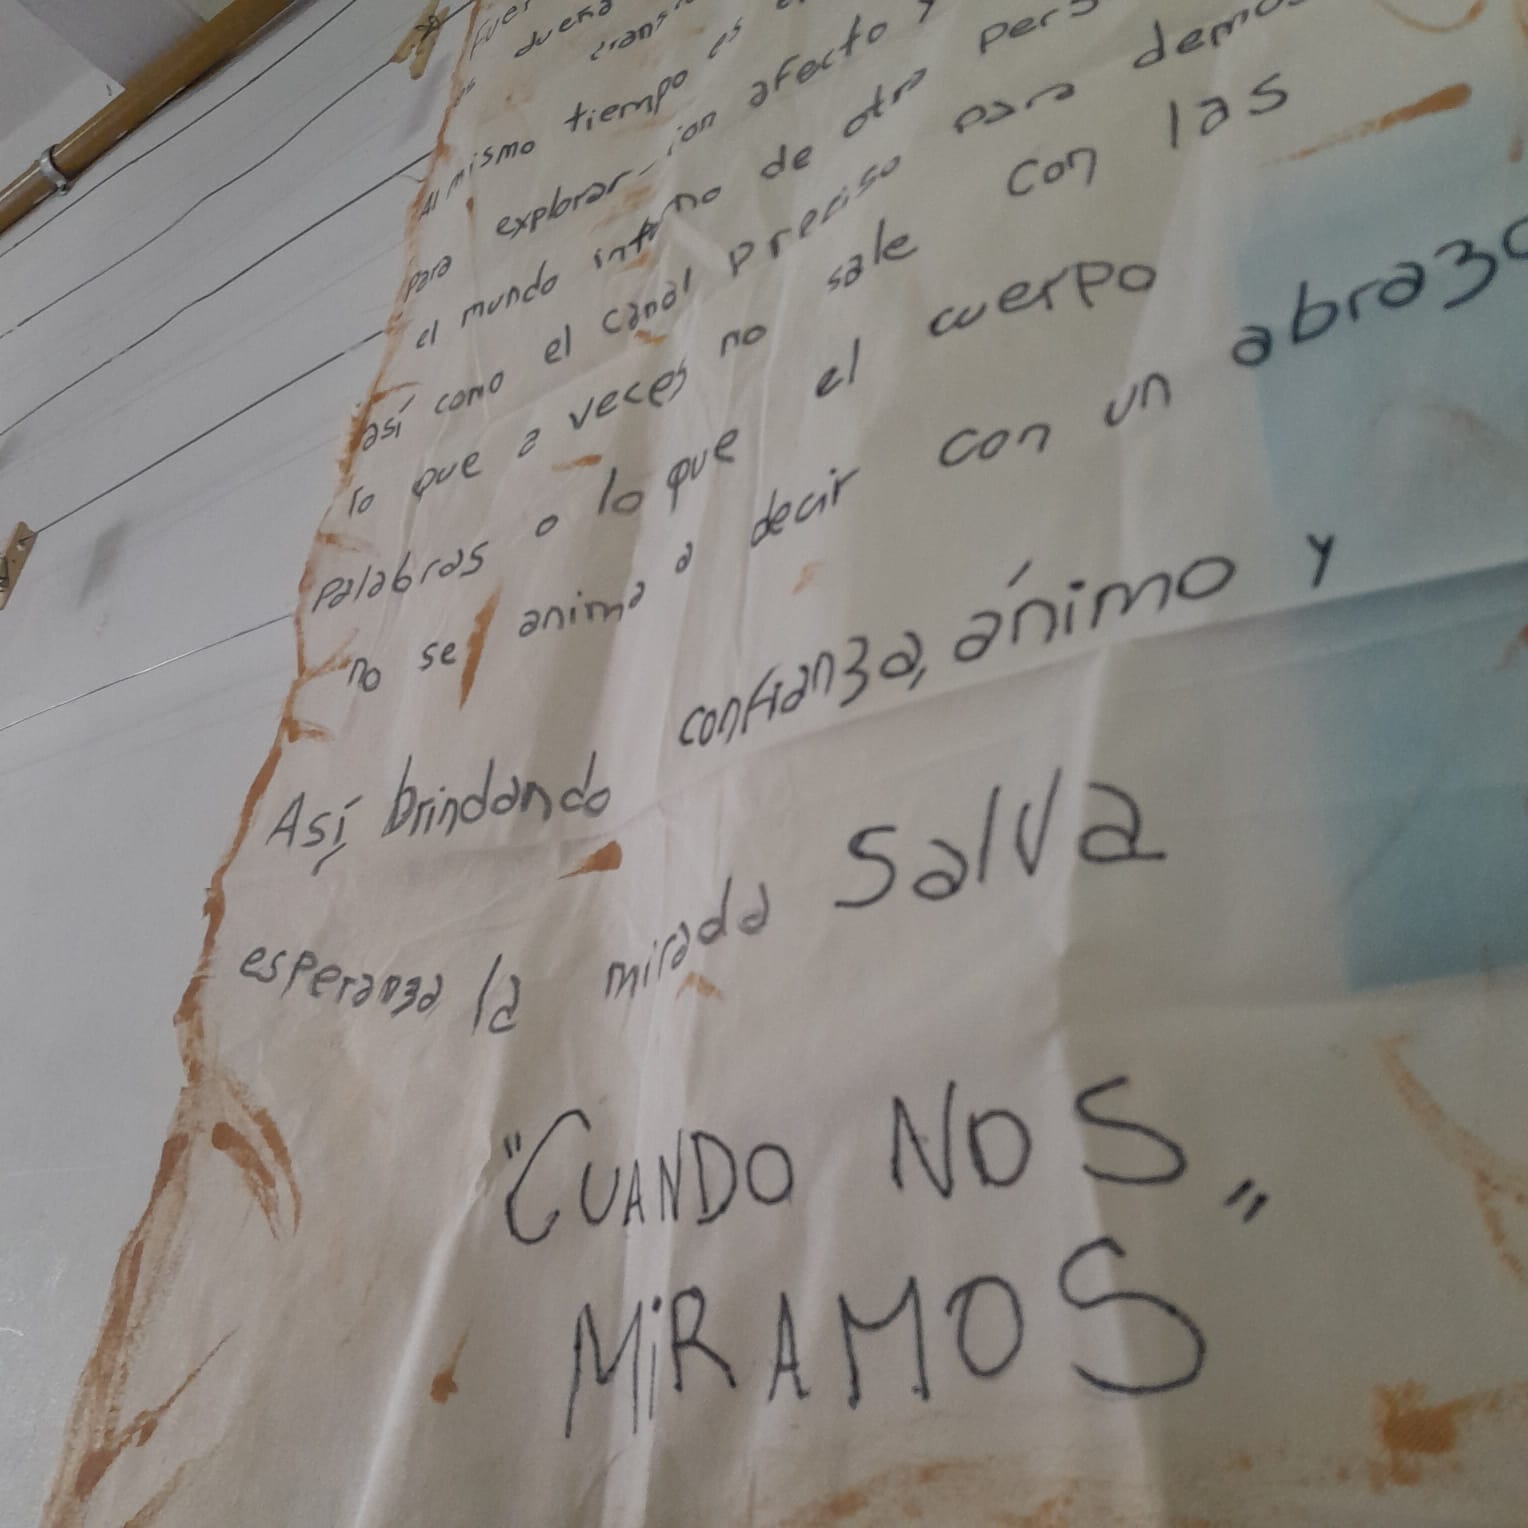 dueña
Al mismo tiempo es
para explorar afecto y
el mundo interno de otra
así como el canal preciso para
lo que a veces no sale con las
palabras o lo que el cuerpo
no se anima a decir con un abrazo
Así brindando confianza, ánimo y
esperanza la mirada salva
"CUANDO NOS
MiRAMOS"